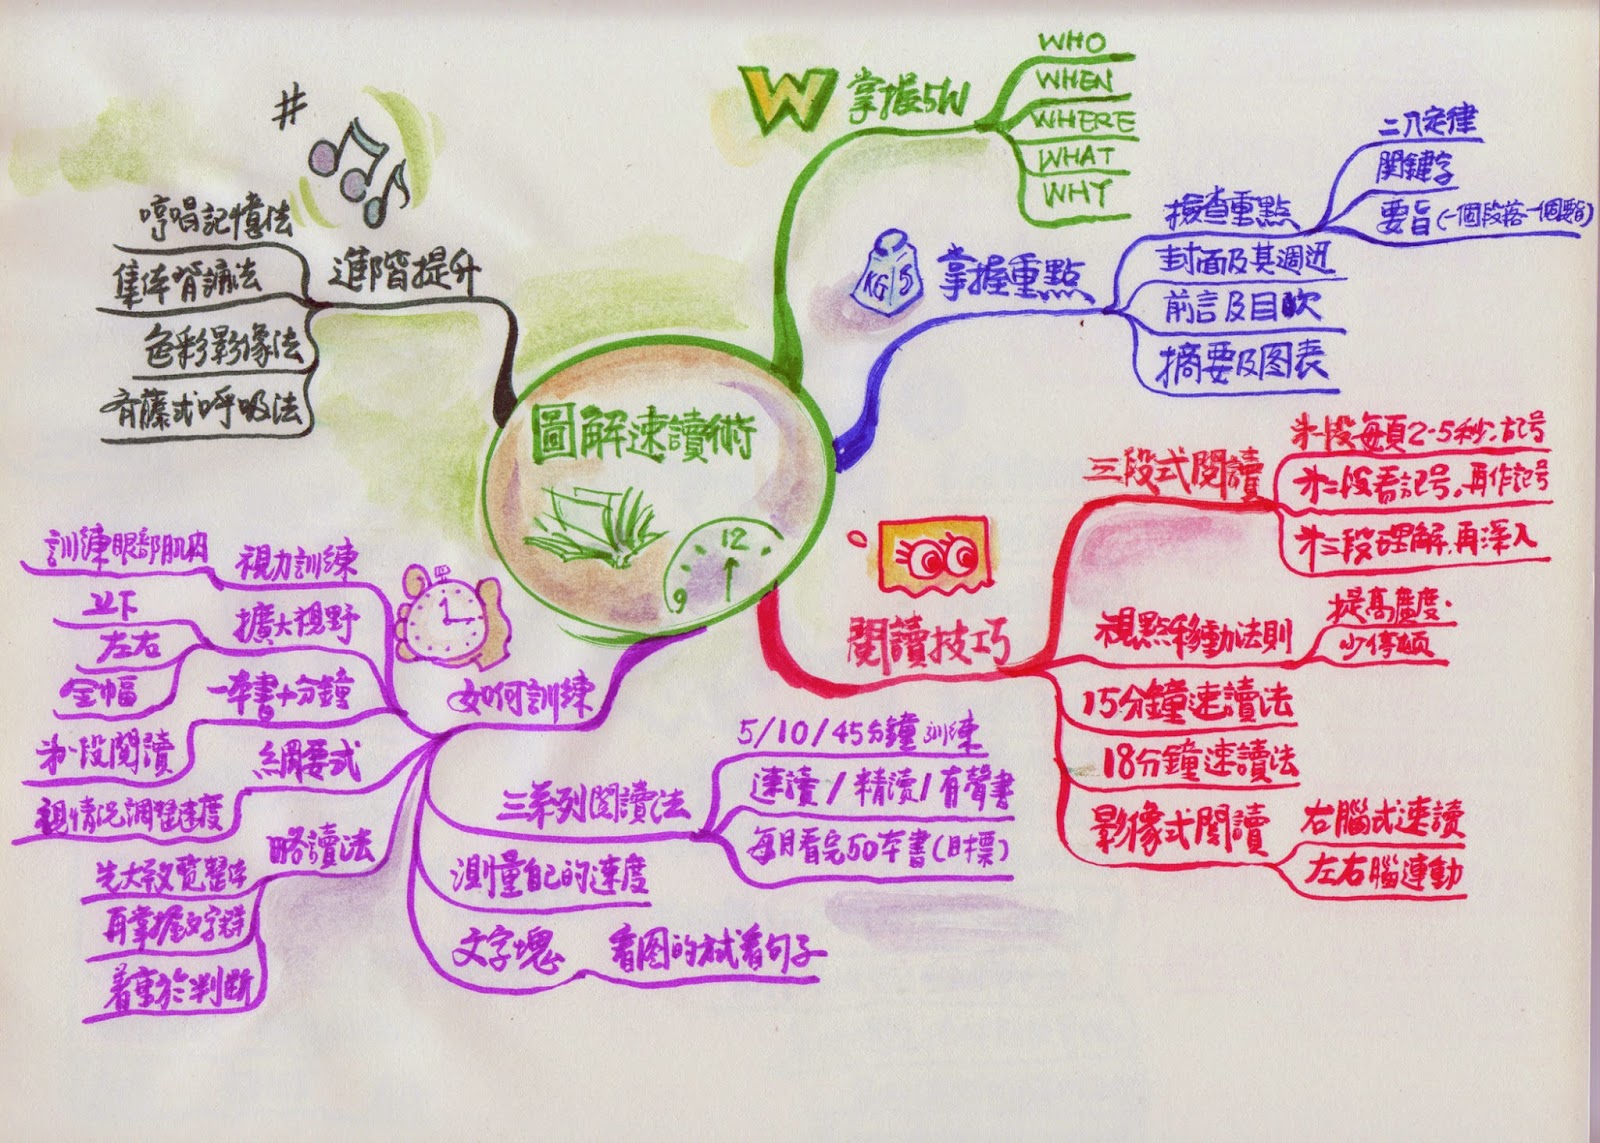 圖解速讀術
12
9
W
掌握5W
WHO
WHEN
WHERE
WHAT
WHY
KG 5
掌握重點
檢查重點
二八定律
関鍵字
要旨(一個段落一個要旨)
封面及其週迅
前言及目次
摘要及图表
閱讀技巧
三段式閱讀
第一段每頁2-5秒,記号
第二段看記号,再作記号
第三段理解,再深入
視點移動法則
提高廣度.
少停頓
15分鐘速讀法
18分鐘速讀法
影像式閱讀
右腦式速讀
左右腦連動
如何訓練
視力訓練
訓練眼部肌肉
擴大視野
上下
左右
全幅
一本書十分鐘
第一段閱讀
綱要式
視情況調整速度
略讀法
先大致覽整本
再掌握文字群
着重於判斷
三系列閱讀法
5/10/45分鐘訓練
速讀/精讀/有聲書
每月看完50本書(目標)
測量自己的速度
文字塊
看图的方式看句子
#
進階提升
哼唱記憶法
集体背誦法
色彩影像法
斉藤式呼吸法